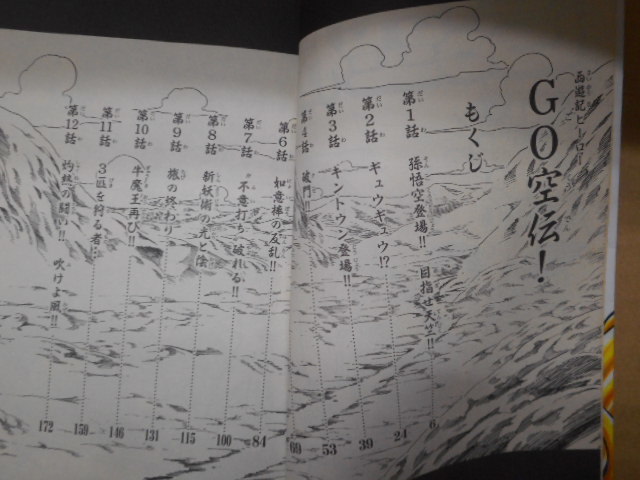 西遊記ヒーロー
GO空伝!
もくじ
第1話 孫悟空登場!! 目指せ天竺!! 6
第2話 キュウキュウ!? 24
第3話 キントウン登場!! 39
第4話 破門!! 53
69
第6話 如意棒の反乱!! 84
第7話 不意打ち破れる!! 100
第8話 新妖術の光と陰 115
第9話 旅の終わり 131
第10話 牛魔王再び!! 146
第11話 3匹を狩る者… 159
第12話 灼熱の闘い!! 吹けよ風!! 172